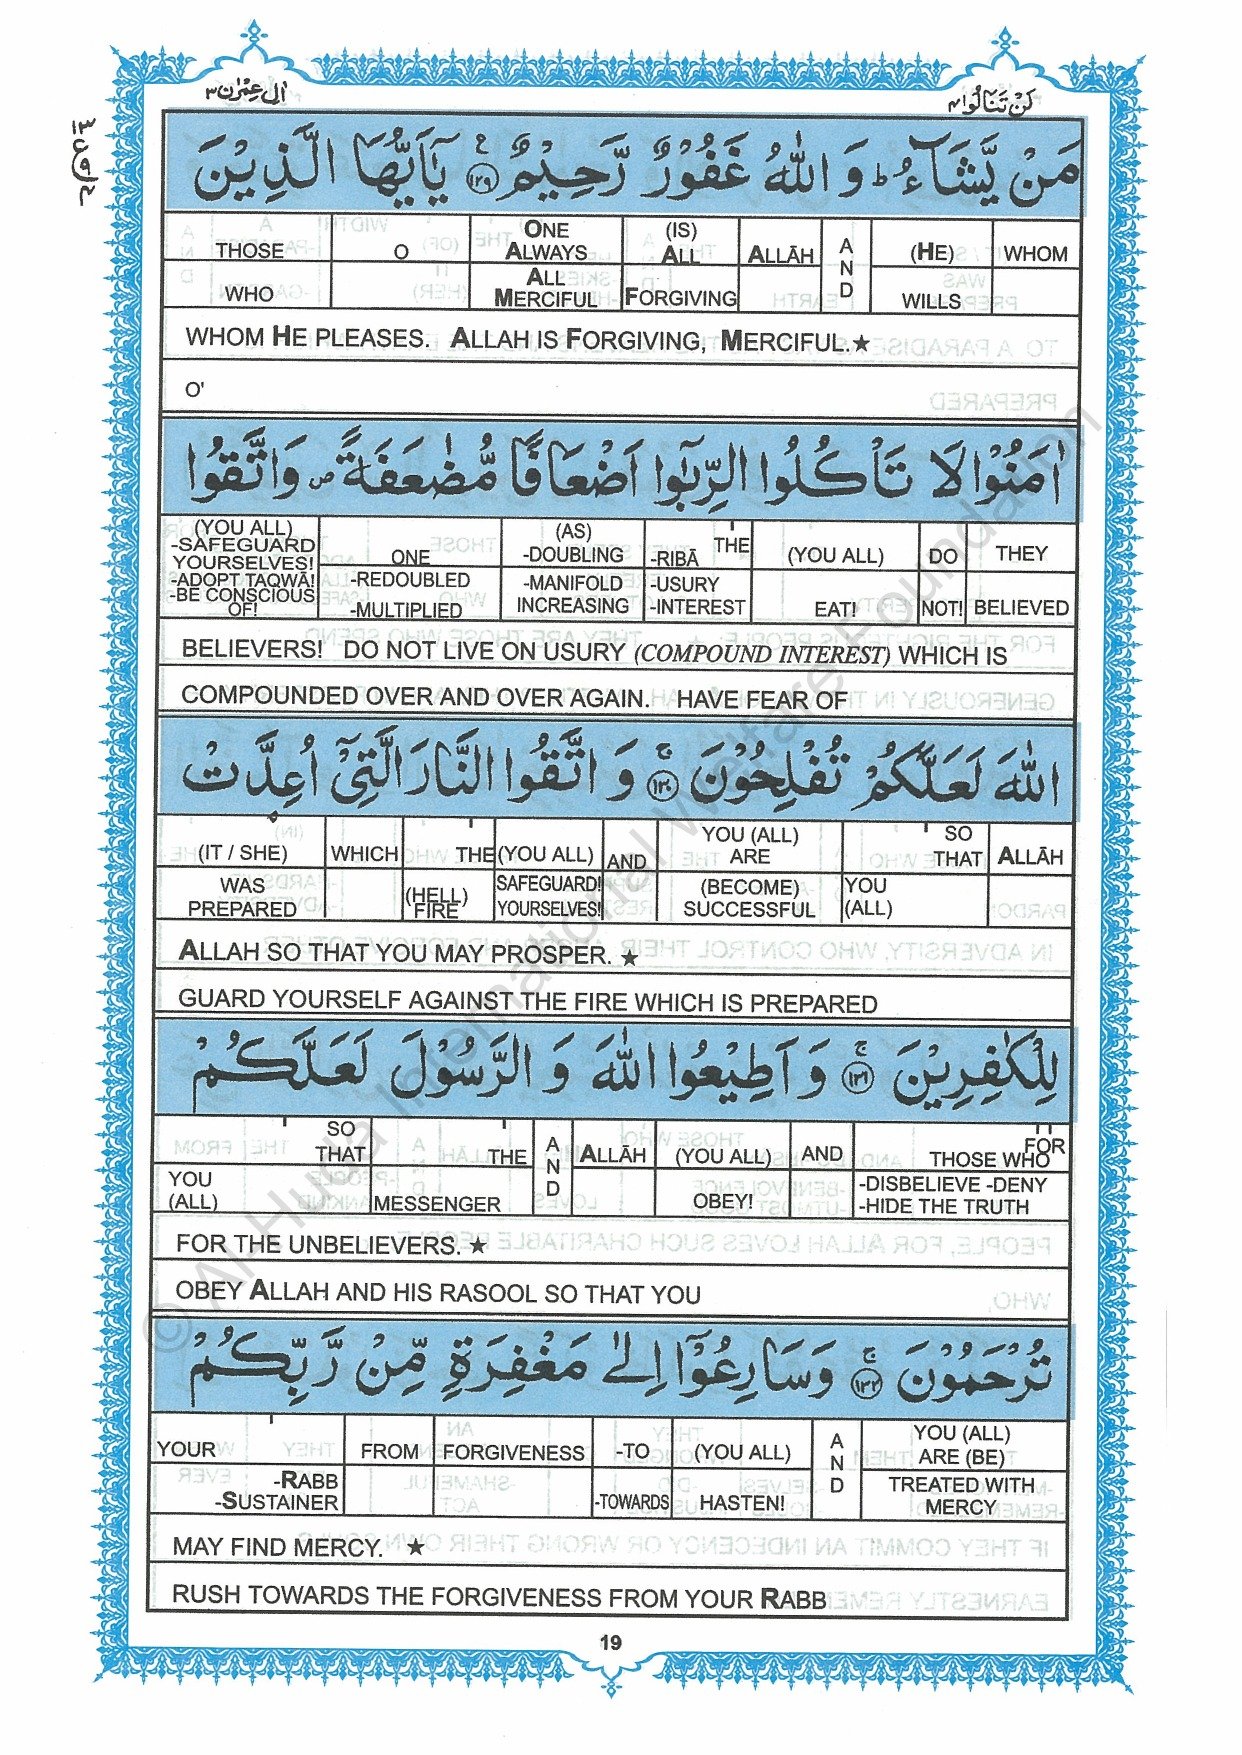 اٰل عِمْرٰن ٣
لَنْ تَنَالُوا ٤
مَنْ يَّشَآءُ ؕ وَ اللّٰهُ غَفُوْرٌ رَّحِيْمٌ ﴿١٢٩﴾ يٰۤاَيُّهَا الَّذِيْنَ
THOSE WHO | O | ONE ALWAYS ALL MERCIFUL | (IS) ALL FORGIVING | ALLĀH | AND | (HE) WILLS | WHOM
WHOM HE PLEASES. ALLAH IS FORGIVING, MERCIFUL.★
O'
اٰمَنُوْا لَا تَاْكُلُوا الرِّبٰۤوا اَضْعَافًا مُّضٰعَفَةً ۪ وَ اتَّقُوا
(YOU ALL) -SAFEGUARD YOURSELVES! -ADOPT TAQWĀ! -BE CONSCIOUS OF! | ONE -REDOUBLED -MULTIPLIED | (AS) -DOUBLING -MANIFOLD INCREASING | THE -RIBĀ -USURY -INTEREST | (YOU ALL) EAT! | DO NOT! | THEY BELIEVED
BELIEVERS! DO NOT LIVE ON USURY (COMPOUND INTEREST) WHICH IS
COMPOUNDED OVER AND OVER AGAIN. HAVE FEAR OF
اللّٰهَ لَعَلَّكُمْ تُفْلِحُوْنَ ﴿١٣٠﴾ وَ اتَّقُوا النَّارَ الَّتِيْۤ اُعِدَّتْ
(IT / SHE) WAS PREPARED | WHICH | THE (HELL) FIRE | (YOU ALL) SAFEGUARD! YOURSELVES! | AND | YOU (ALL) ARE (BECOME) SUCCESSFUL | SO THAT YOU (ALL) | ALLĀH
ALLAH SO THAT YOU MAY PROSPER. ★
GUARD YOURSELF AGAINST THE FIRE WHICH IS PREPARED
لِلْكٰفِرِيْنَ ﴿١٣١﴾ وَ اَطِيْعُوا اللّٰهَ وَ الرَّسُوْلَ لَعَلَّكُمْ
SO THAT YOU (ALL) | THE MESSENGER | AND | ALLĀH | (YOU ALL) OBEY! | AND | FOR THOSE WHO -DISBELIEVE -DENY -HIDE THE TRUTH
FOR THE UNBELIEVERS. ★
OBEY ALLAH AND HIS RASOOL SO THAT YOU
تُرْحَمُوْنَ ﴿١٣٢﴾ وَ سَارِعُوْۤا اِلٰى مَغْفِرَةٍ مِّنْ رَّبِّكُمْ
YOUR -RABB -SUSTAINER | FROM | FORGIVENESS | -TO -TOWARDS | (YOU ALL) HASTEN! | AND | YOU (ALL) ARE (BE) TREATED WITH MERCY
MAY FIND MERCY. ★
RUSH TOWARDS THE FORGIVENESS FROM YOUR RABB
19
© Al-Huda International Welfare Foundation